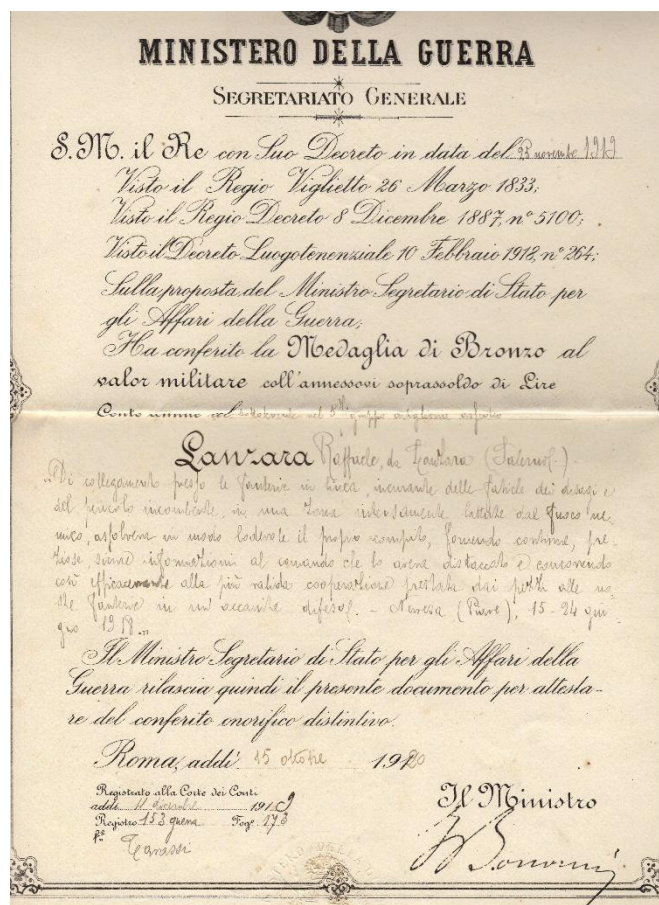 MINISTERO DELLA GUERRA
SEGRETARIATO GENERALE
S. M. il Re con Suo Decreto in data del 23 novembre 1919
Visto il Regio Viglietto 26 Marzo 1833;
Visto il Regio Decreto 8 Dicembre 1887, nº 5100;
Visto il Decreto Luogotenenziale 10 Febbraio 1918, nº 264;
Sulla proposta del Ministro Segretario di Stato per
gli Affari della Guerra;
Ha conferito la Medaglia di Bronzo al
valor militare coll'annessovi soprassoldo di Lire
Cento annue al sottotenente nel gruppo
Lanzara Raffaele, da Lanzara (Salerno).-
„Di collegamento presso le fanterie in linea, incurante delle fatiche dei disagi e
del pericolo incombente, in una zona intensamente battuta dal fuoco ne-
mico, assolveva in modo lodevole il proprio compito, fornendo continue, pre-
ziose, sicure informazioni al comando che lo aveva distaccato e concorrendo
così efficacemente alla più valida cooperazione prestata dai pezzi alle no-
stre fanterie in un' accanita difesa. - Nervesa (Piave), 15-24 giu-
gno 1918.„
Il Ministro Segretario di Stato per gli Affari della
Guerra rilascia quindi il presente documento per attesta-
re del conferito onorifico distintivo.
Roma, addì 15 ottobre 1920
Registrato alla Corte dei Conti
addì 11 dicembre 1919
Registro 153 guerra Fog.º 173
Il Ministro
Bonomi